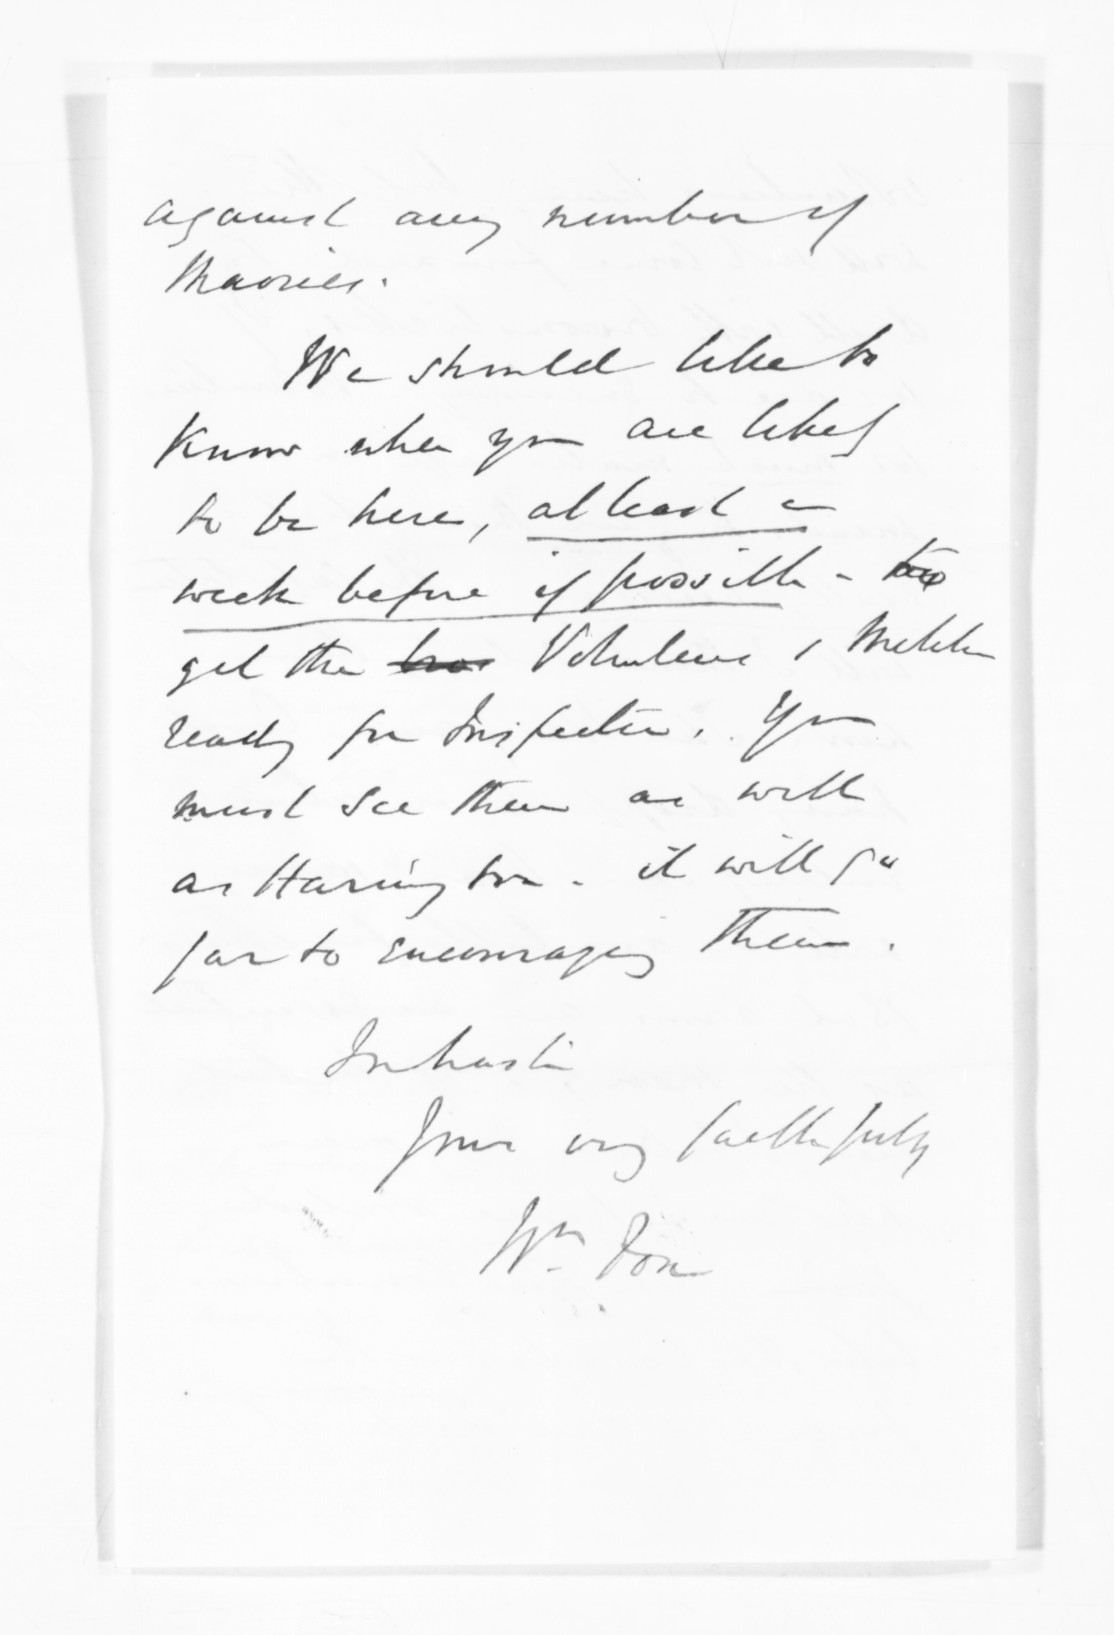 against any number of
Maories.
We should like to
know when you are likely
to be here, at least a
week before if possible - to
get the Volunteers & Militia
ready for Inspection. You
must see them as well
as Harington. it will go
far to encouraging them.
In haste
Yours very faithfully
Wm